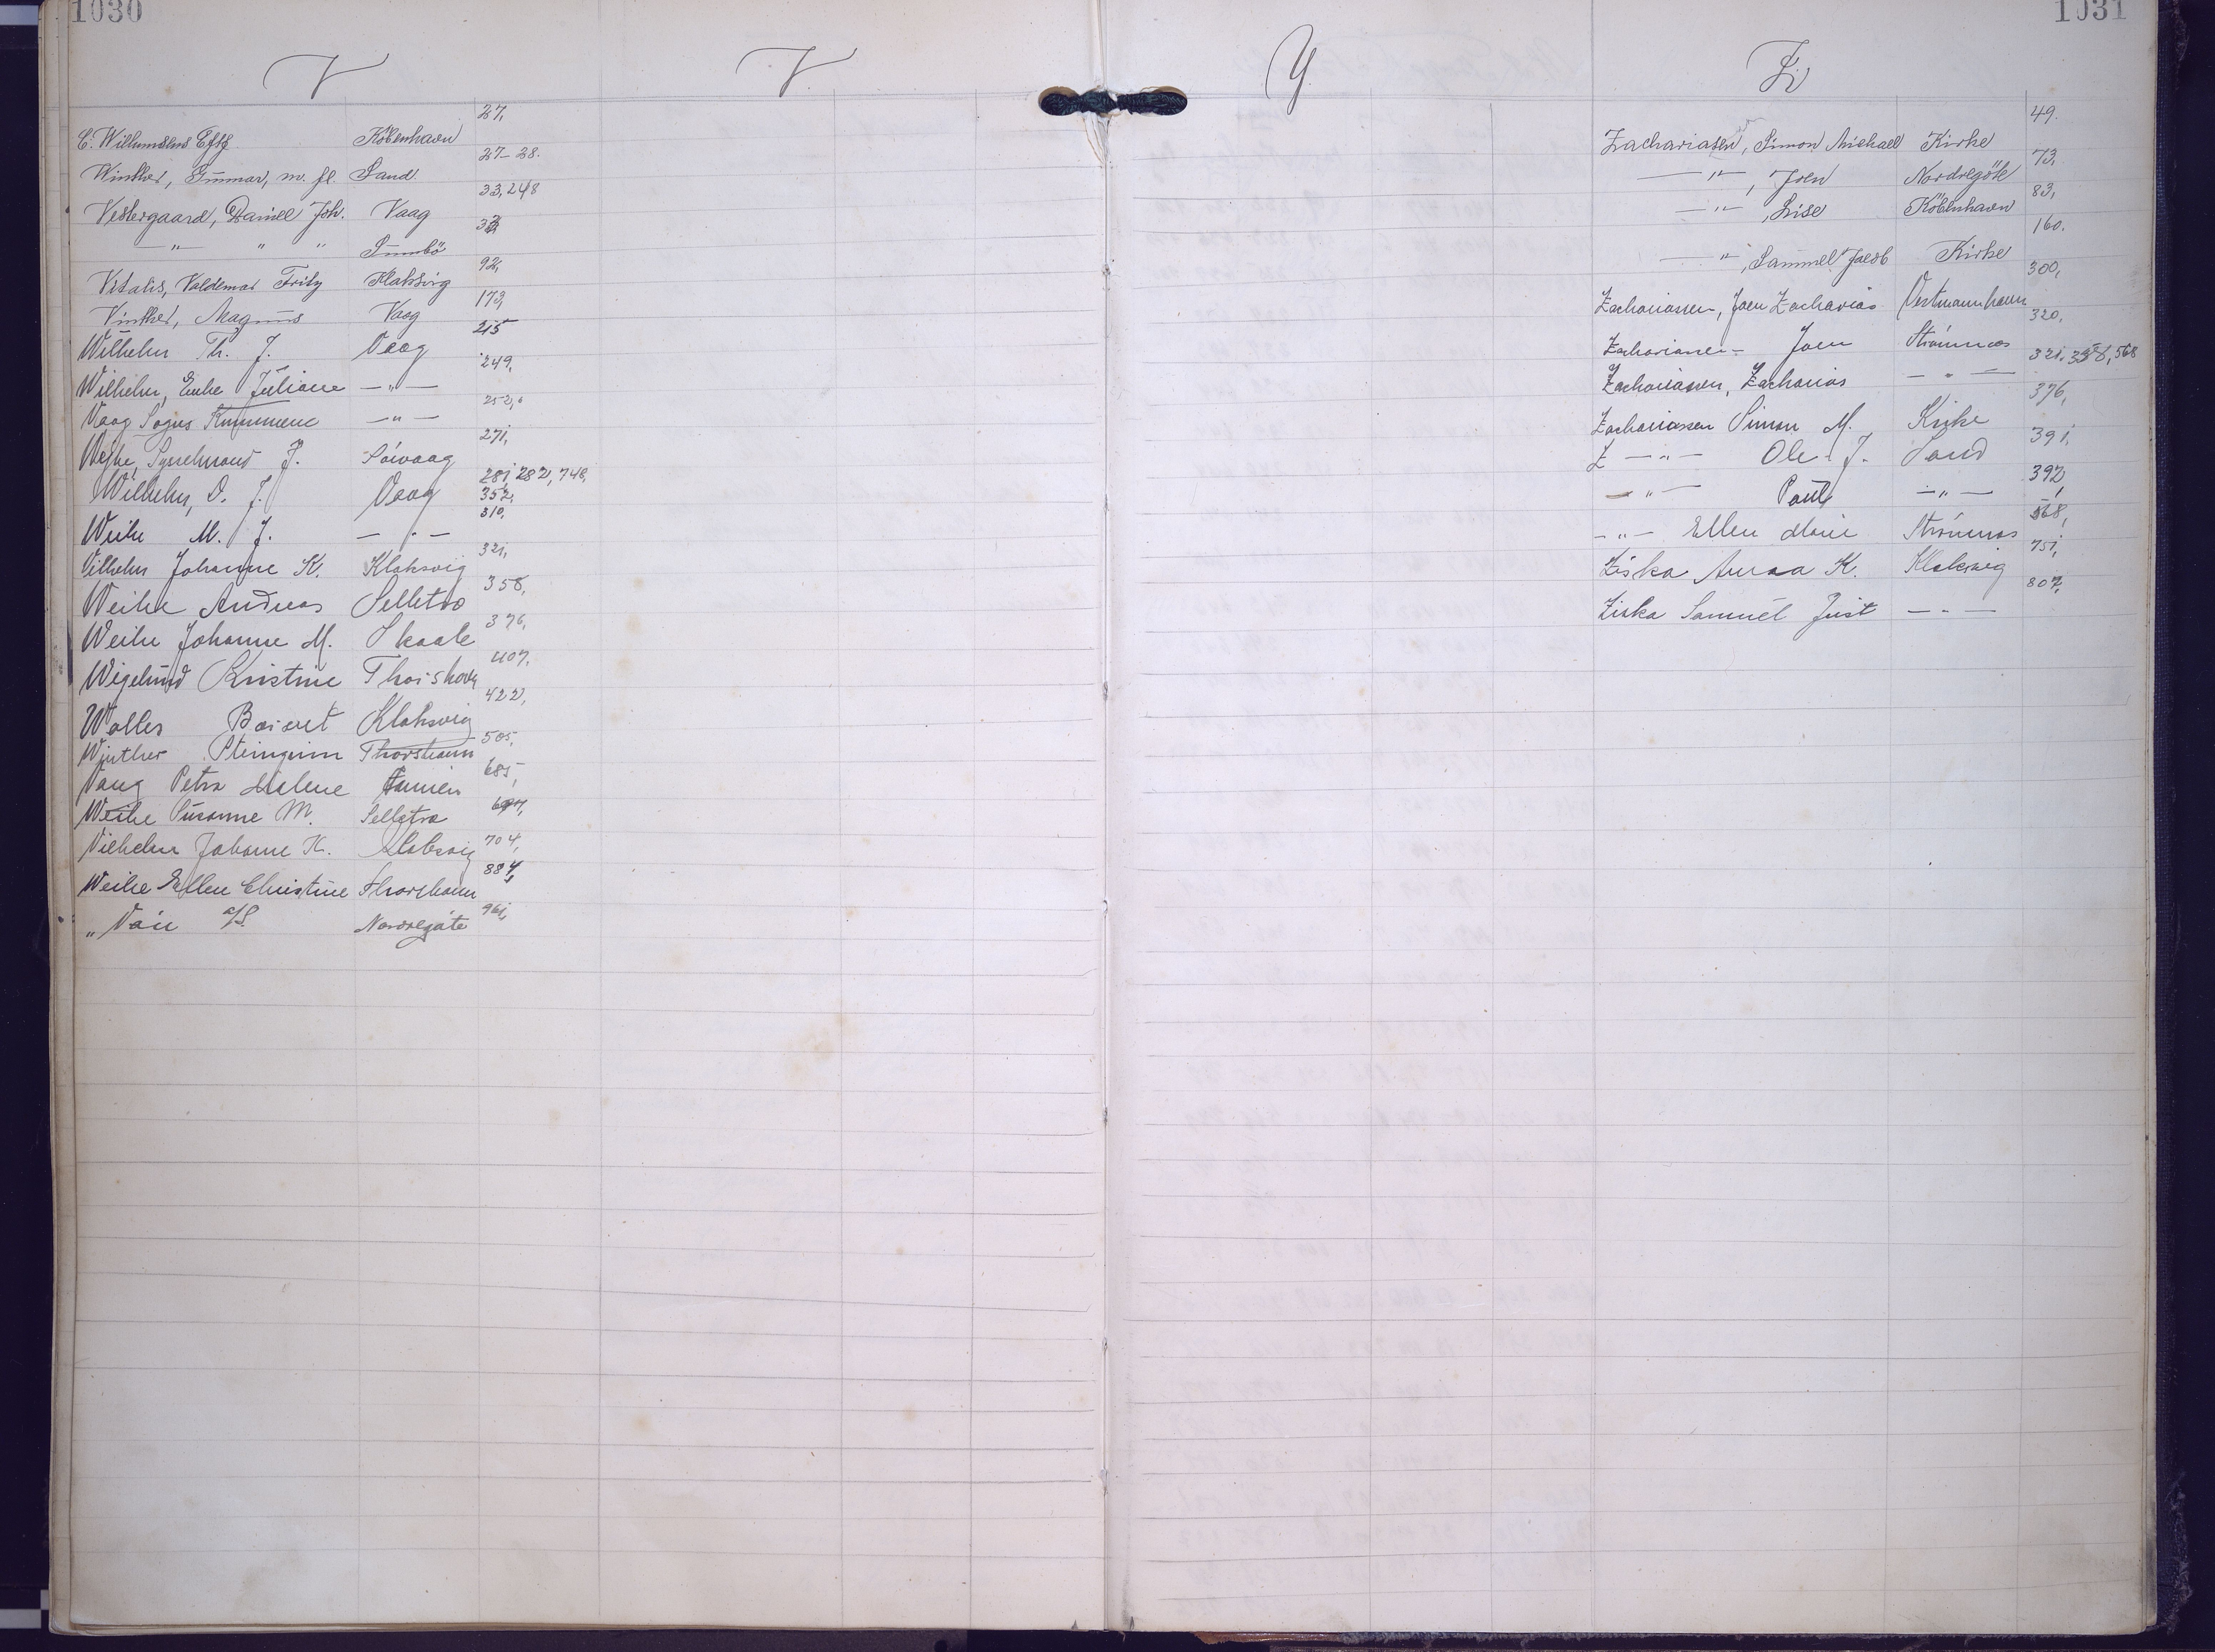 1030
V
V.
27,
C. Wilhumsens Eftf København
27-28.
Winther, Gunnar, m. fl. Sand
33, 248
Vestergaard, Daniel Joh. Vaag
33,
—"— " " Sumbö
92,
Vitalis, Valdemar Fritz Klaksvig
173,
Vinther, Magnus Vaag
215
Wilhelm Th. J. Vaag
249,
Wilhelm, Emke Juliane —"—
252,
Vaag Sogns Kommune —"—
271,
Weihe, Sysselmand J. Sörvaag
281, 282, 748,
Wilhelm, D. J. Vaag 352,
310,
Weihe M. J. — " —
321,
Vilhelm Johanne K. Klaksvig
358,
Weihe Andreas Selletræ
376,
Weihe Johanne M. Skaale
407,
Wigelund Kristine Thorshavn
422,
Walles Klaksvig
505,
Winther Steingrim Thorshavn
685,
Vang Petra Malene
Weihe Susanne M. Selletræ
704,
Vilhelm Johanne K. Klaksvig
884,
Weihe Ellen Christine Thorshavn
961,
" a/S. Nordregøte
1031
Y
Z
49.
Zachariasen, Simon Michael Kirke
73,
—"—, Joen Nordregöte
83,
—"—, Lise København
160.
—"—, Samuel Jacob Kirke
300,
Zachariassen, Joen Zacharias Vestmannhavn
320,
Zachariassen Joen Strömnæs
321, 358, 568
Zachariassen, Zacharias — " —
376,
Zachariassen Simon M. Kirke
391,
Z —"— Ole J. Sand
392,
—"— Paul —"—
568,
—"— Ellen Marie Strömnæs
751,
Ziska Anna K. Klaksvig
807,
Ziska Samuel Just — " —